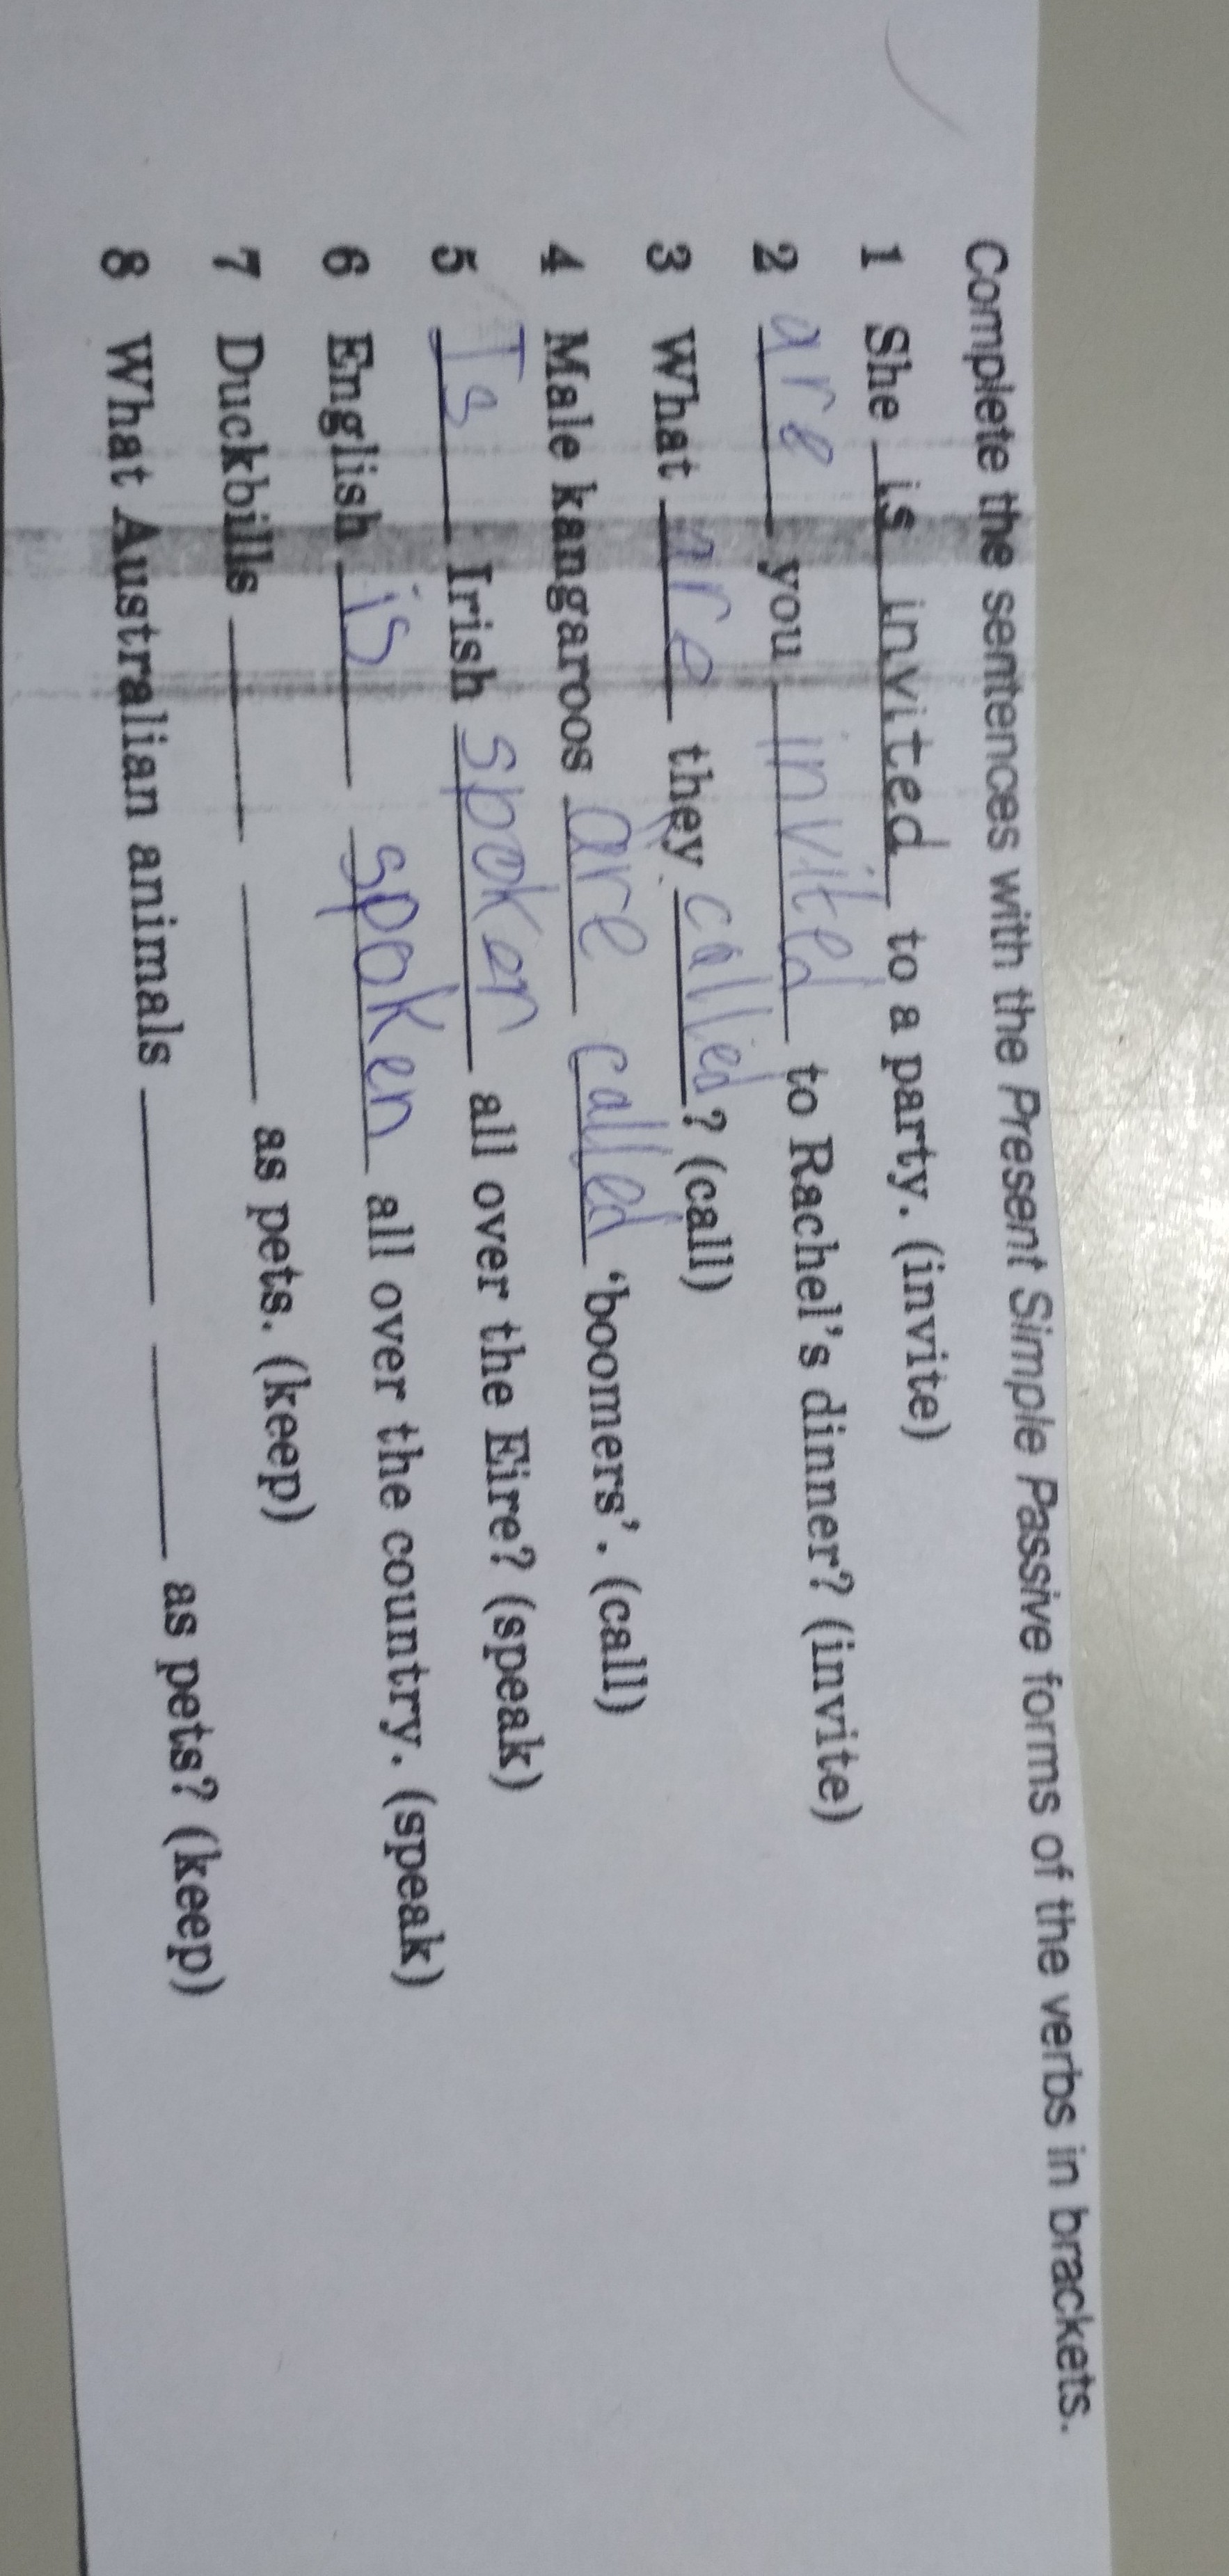 Complete the sentences with the Present Simple Passive forms of the verbs in brackets.
1 She is invited to a party. (invite)
2 are you invited to Rachel's dinner? (invite)
3 What are they called? (call)
4 Male kangaroos are called 'boomers'. (call)
5 Is Irish spoken all over the Eire? (speak)
6 English is spoken all over the country. (speak)
7 Duckbills ______ ______ as pets. (keep)
8 What Australian animals ______ ______ as pets? (keep)